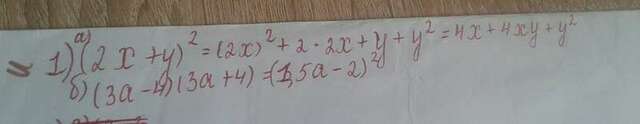 1) а) (2x+y)² = (2x)² + 2 · 2x + y + y² = 4x + 4xy + y²
б) (3a-4)(3a+4) = (1,5a-2)²